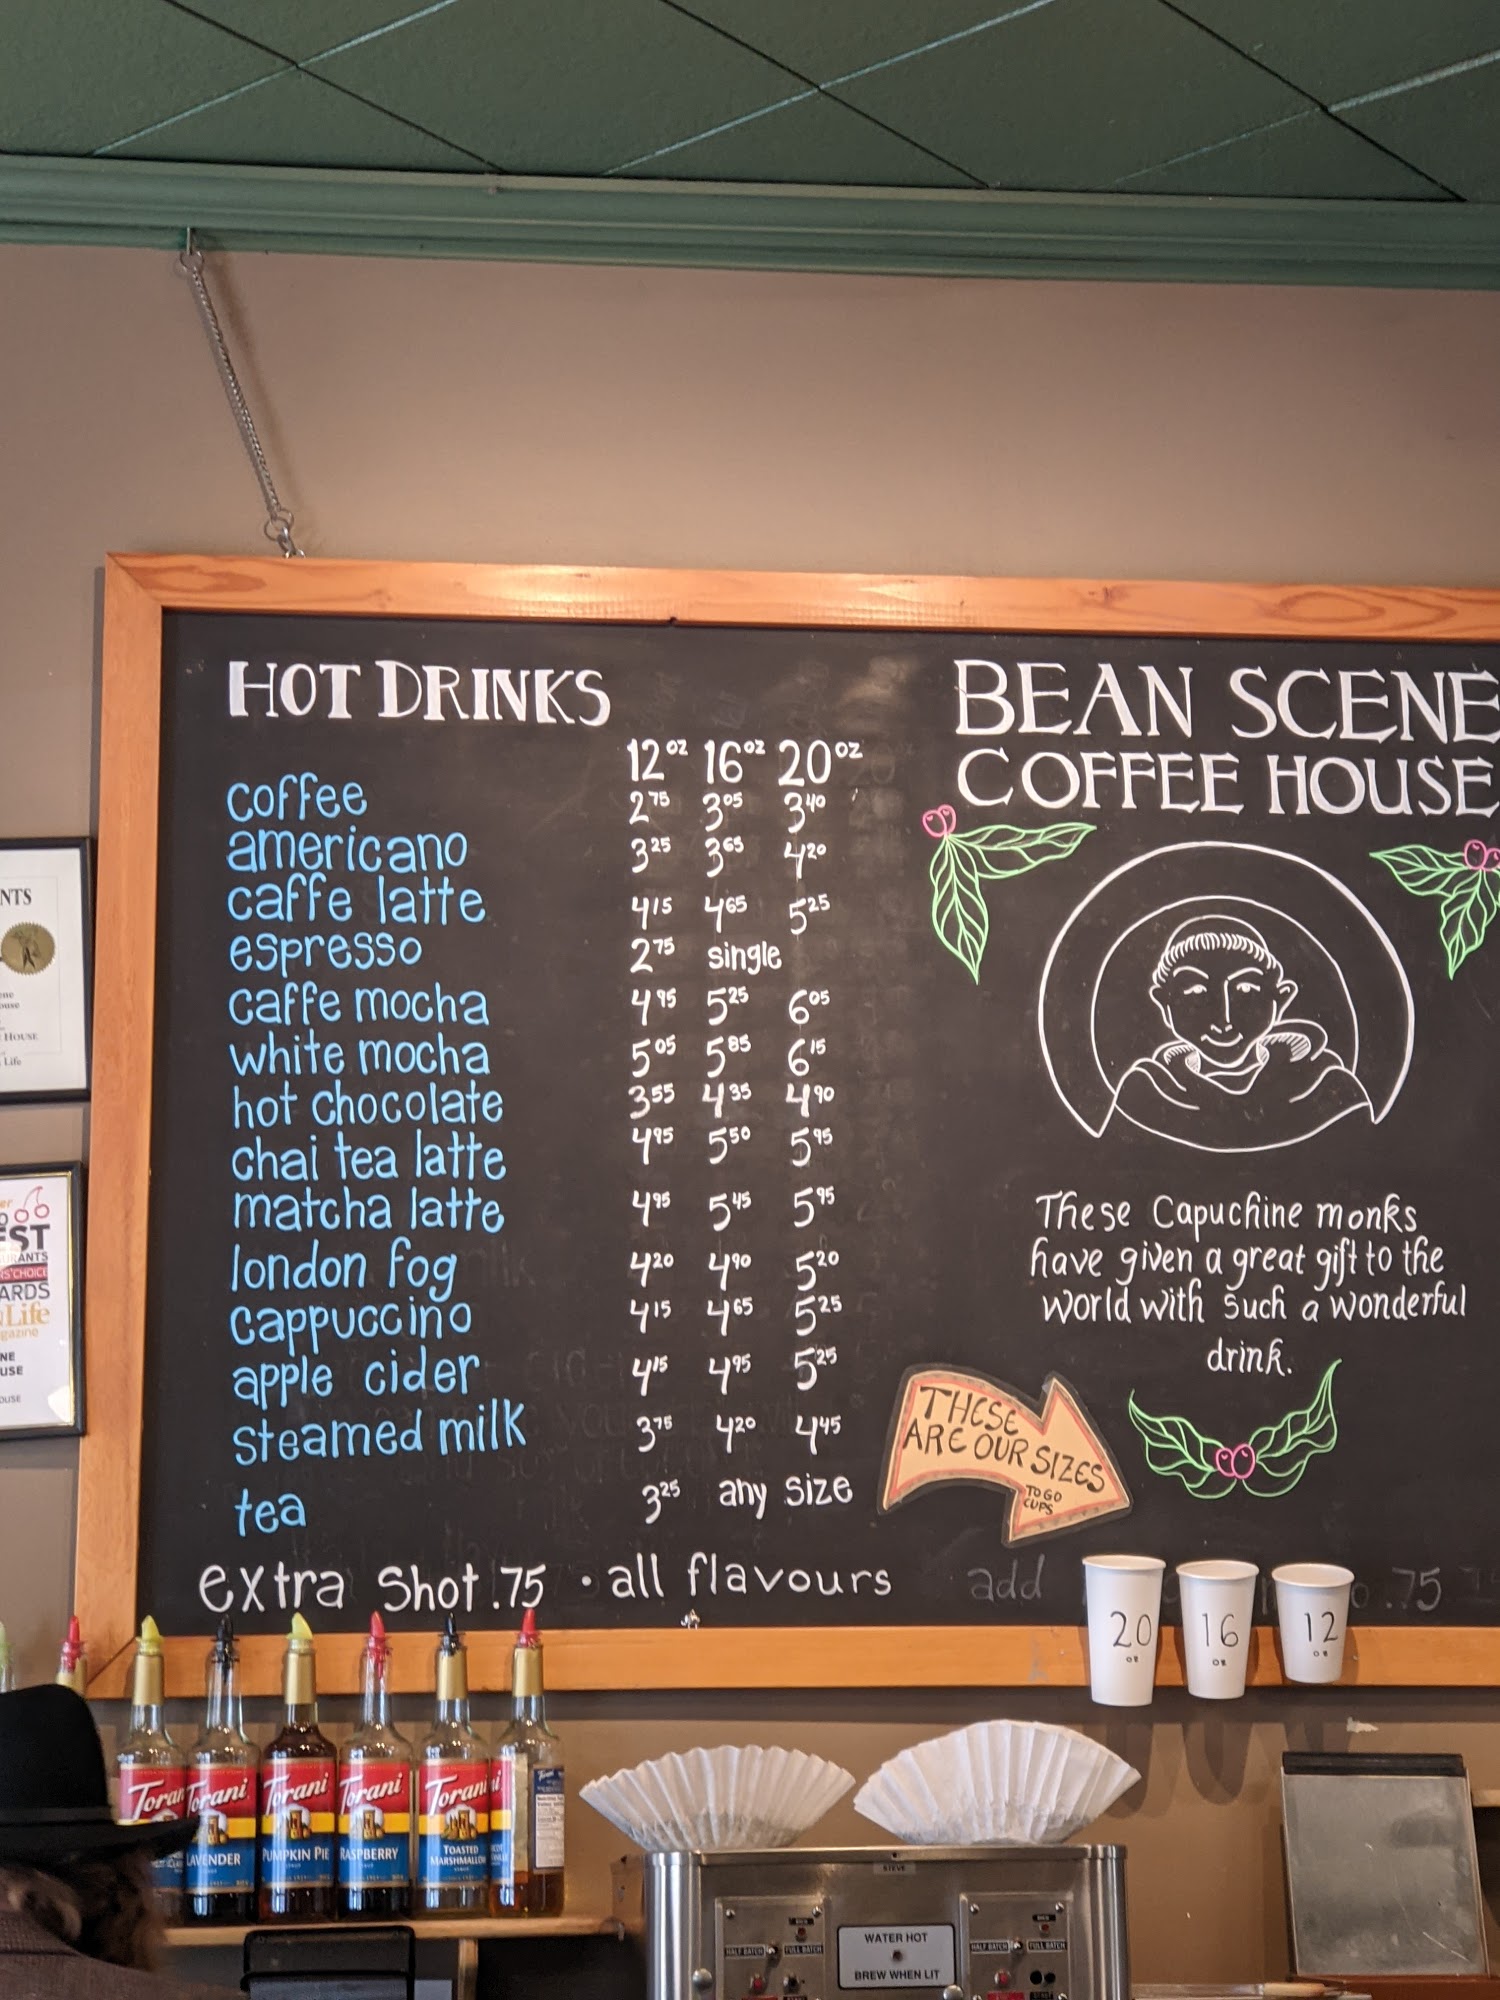 HOT DRINKS
12oz 16oz 20oz
coffee 2 75 3 05 3 40
americano 3 25 3 65 4 20
caffe latte 4 15 4 65 5 25
espresso 2 75 single
caffe mocha 4 95 5 25 6 05
white mocha 5 05 5 85 6 15
hot chocolate 3 55 4 35 4 90
chai tea latte 4 95 5 50 5 95
matcha latte 4 95 5 45 5 95
london fog 4 20 4 90 5 20
cappuccino 4 15 4 65 5 25
apple cider 4 15 4 95 5 25
steamed milk 3 75 4 20 4 45
tea 3 25 any size
extra shot .75 · all flavours add .75
BEAN SCENE
COFFEE HOUSE
These Capuchine monks
have given a great gift to the
world with such a wonderful
drink.
THESE
ARE OUR SIZES
TO GO
CUPS
20
oz
16
oz
12
oz
NTS
HOUSE
Life
EST
ARDS
Life
Torani
Torani
LAVENDER
Torani
PUMPKIN PIE
Torani
RASPBERRY
Torani
TOASTED
MARSHMALLOW
STEVE
WATER HOT
BREW WHEN LIT
HALF BATCH
FULL BATCH
HALF BATCH
FULL BATCH